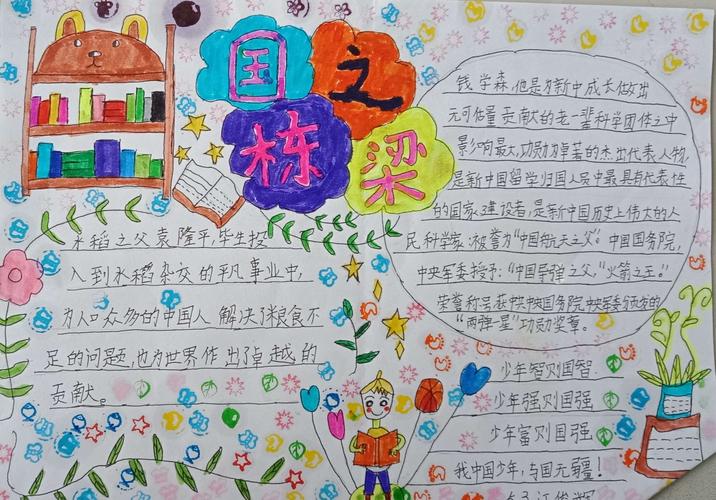 国之
栋梁
水稻之父袁隆平,毕生投
入到水稻杂交的平凡事业中,
为人口众多的中国人解决了粮食不
足的问题,也为世界作出了卓越的
贡献。
钱学森,他是为新中成长做出
无可估量贡献的老一辈科学团体之中
影响最大,功勋为卓著的杰出代表人物,
是新中国留学归国人员中最具有代表性
的国家建设者,是新中国历史上伟大的人
民科学家:被誉为“中国航天之父”。中国国务院,
中央军委授予:“中国导弹之父,”“火箭之王。”
荣誉称号获中共中央国务院中央军委颁发的
“两弹一星”功勋奖章。
少年智则国智
少年强则国强
少年富则国强
我中国少年,与国无疆!